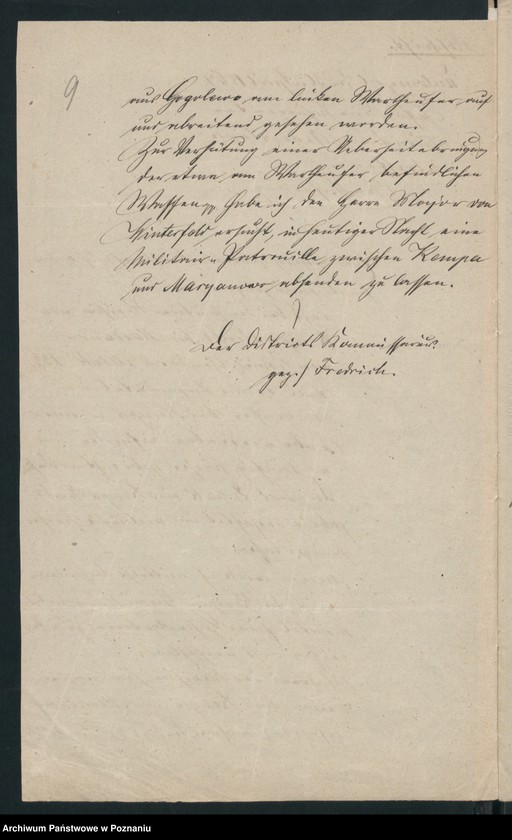 9
aus Gogolewo am linken Wartheufer auf
und abreitend gesehen worden.
Zur Verhütung einer Ueberseitebringung
der etwa am Wartheufer befindlichen
Waffen pp habe ich den Herrn Major von
Winterfeld ersucht, in heutiger Nacht eine
Militair-Patrouille zwischen Kempa
und Maryanowo absenden zu lassen.
Der Districts Kommissarius.
gez./ Fredrich.
Archiwum Państwowe w Poznaniu